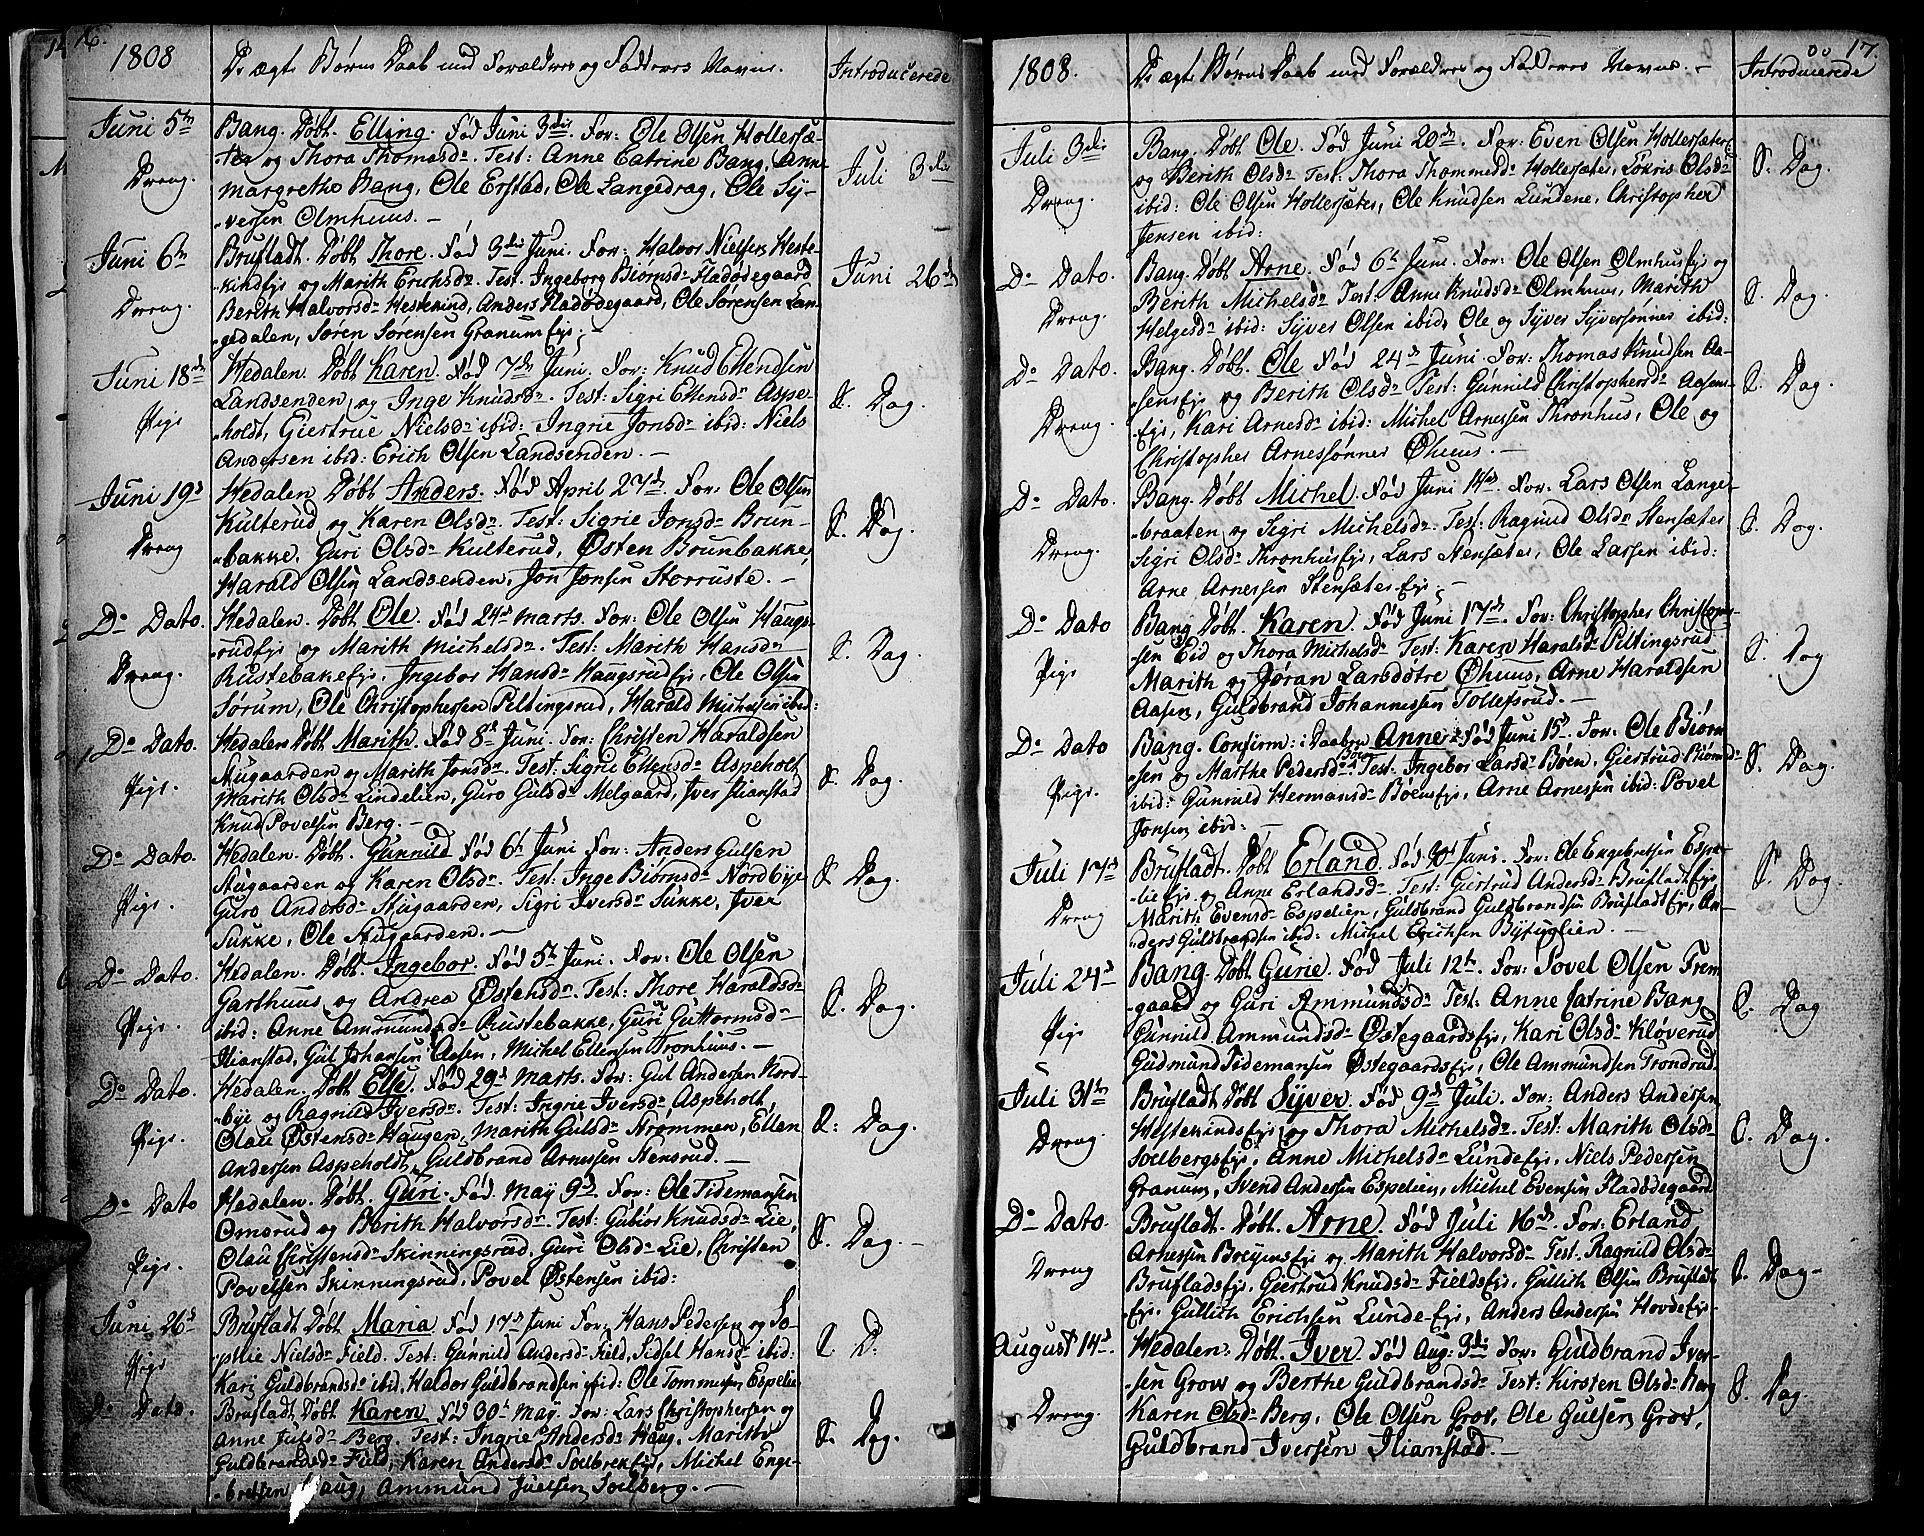 16.
1808
De ægte Børns Daab med Forældres og Fadderes Navne.
Introducerede
Juni 5te
Dreng.
Bang. Døbt. Elling. Fød Juni 3die. For: Ole Olsen Hollersæ-
-ter og Thora Thomasdr. Test: Anne Catrine Bang, Anne
Margrethe Bang, Ole Erstad, Ole Langedrag, Ole Sy-
-versen Olmhuus. -
Juli 3die
Juni 6te
Dreng.
Brufladt. Døbt Thore. Fød 3die Juni. For: Halvor Nielsen Heste-
kindejr og Marith Erichsdr. Test. Ingeborg Biörnsdr Fladødegaard
Berith Halvorsdr Hestekind, Anders Fladødegaard, Ole Sørensen Lan-
gedalen, Sören Sörensen Granum Ejr.
Juni 26de
Juni 18de
Pige
Hedalen. Døbt Karen. Fød 7de Juni. For: Knud Ellendsen
Landsenden og Inge Knudsdr. Test: Sigri Ellensdr Aspe-
-holdt, Giertrue Nielsdr ibid: Ingrie Jonsdr ibid: Niels
Andersen ibid: Erich Olsen Landsenden. -
S. Dag.
Juni 19d
Dreng
Hedalen. Døbt Anders. Fød April 27de. For: Ole Olsen
Kulterud og Karen Olsdr. Test: Sigrie Jonsdr Brun-
-bakke, Guri Olsdr Kulterud, Østen Brunbakke,
Harald Olsen Landsenden, Jon Jonsen Storruste. -
S. Dag.
Do Dato.
Dreng.
Hedalen. Døbt Ole. Fød 24d Marts. For: Ole Olsen Haugs-
-rudejr og Marith Michelsdr. Test: Marith Hansdr
Rustebakejr, Ingebor Hansdr Haugsrudejr, Ole Olsen
Sørum, Ole Christophersen Peltingsrud, Harald Michelsen ibid:
S. Dag.
Do Dato.
Pige.
Hedalen Døbt Marith. Fød 8d Juni. For: Christen Haraldsen
Stugaarden og Marith Jonsdr. Test: Sigrie Ellensdr Aspeholt
Marith Olsdr Lindelien, Guro Gulsdr Melgaard, Iver Ilianstad
Knud Povelsen Berg. -
S. Dag.
Do Dato.
Pige.
Hedalen. Døbt. Gunnild Fød 6t Juni For: Anders Gulsen
Stugaarden og Karen Olsdr. Test: Inge Biørnsdr Nordbye
Guro Andersdr Stugaarden, Sigri Iversdr Sukke, Iver
Sukke, Ole Stugaarden. -
S. Dag.
Do Dato.
Pige.
Hedalen. Døbt. Ingebor. Fød 5t Juni. For: Ole Olsen
Garthuus og Andrea Østensdr. Test: Thore Haraldsdr
ibid: Anne Ammundsdr Rustebakke, Guri Guttormsdr
Ilianstad, Gul Johansen Aasen, Michel Ellensen Tronhuus. -
S. Dag.
Do Dato.
Pige.
Hedalen. Døbt Else. Fød 29d Marts. For: Gul Andersen Nord-
-bye og Ragnild Iversdr. Test: Ingrie Iversdr Aspeholt,
Olau Østensdr Haugen, Marith Gulsdr Strømmen, Ellen
Andersen Aspeholdt, Guldbrand Arnesen Stensrud. -
S. Dag.
Do Dato
Pige.
Hedalen. Døbt. Guri. Fød. May 9d. For: Ole Tidemansen
Omsrud og Berith Halvorsdr. Test: Gubior Knudsdr Lie,
Olau Christensdr Skinningsrud, Guri Olsdr Lie, Christen
Povelsen Skinningsrud, Povel Østensen ibid:
S. Dag. -
Juni 26d
Pige
Brufladt Døbt Maria Fød 17d Juni For: Hans Pedersen og So-
-phie Nielsdr Field. Test: Gunnild Andersdr Field, Sidsel Hansdr ibid:
Kari Guldbrandsdr ibid, Haldor Guldbrandsen ibid: Ole Tommesen Espelie
S. D:
Do Dato.
Brufladt Døbt Karen Fød 30t May. For: Lars Christophersen og
Anne Julsdr Berg. Test: Ingrie Andersdr Haug, Marithe
Guldbrandsdr Field, Karen Andersdr Soelbrekejr, Michel Enge-
-bretsen Haug, Ammund Juelsen Soelberg. -
S. Dag.
17.
1808.
De ægte Børns Daab med Forældres og Fadderes Navne. -
Introducerede
Juli 3die
Dreng.
Bang. Døbt Ole. Fød Juni 20de. For: Even Olsen Hollersæter
og Berith Olsdr Test: Thora Thommesdr Hollersæter, Lökris Olsdr
ibid: Ole Olsen Hollersæter, Ole Knudsen Lundene, Christopher
Jensen ibid:
S. Dag.
Do Dato.
Dreng.
Bang. Døbt Arne. Fød 6t Juni. For: Ole Olsen Olmhusejr og
Berith Michelsdr Test: Anne Knudsdr Olmhuus, Marith
Helgesdr ibid: Syver Olsen ibid, Ole og Syver Syversønner ibid:
S. Dag.
Do Dato.
Dreng.
Bang. Døbt. Ole Fød 24d Juni. For: Thomas Knudsen Aa-
-sensejr og Berith Olsdr Test: Gunnild Christophersdr Aasens-
-ejr, Kari Arnesdr ibid: Michel Arnessen Thronhus, Ole og
Christopher Arnessønner Øhuus. -
S. Dag.
Do Dato.
Dreng.
Bang. Døbt. Michel. Fød Juni 14de. For. Lars Olsen Lange-
braaten og Sigri Michelsdr. Test: Ragnild Olsdr Stensæter
Sigri Olsdr Thronhusejr, Lars Stensæter, Ole Larsen ibid:
Arne Arnessen Stensæterejr. -
S. Dag.
Do Dato
Pige
Bang Døbt. Karen. Fød Juni 17de. For: Christopher Christopher-
-sen Eid og Thora Michelsdr Test: Karen Haralsdr Peltingsrud
Marith og Jøran Larsdøtre Øhuus, Arne Haraldsen
Aasen, Guldbrand Johannessen Tollefsrud. -
S. Dag
Do Dato
Pige.
Bang. Confirm: i Daaben Anne Fød Juni 15d. For: Ole Biørn-
-sen og Marthe Pedersdr Test: Ingebor Larsdr Bøen, Giertrud Biørnsdr
ibid: Gunnild Hermansdr Bøensejr, Arne Arnessen ibid: Povel
Jonsen ibid: -
S. Dag.
Juli 17d
Dreng
Brufladt. Døbt Erland. Fød 20d Juni. For: Ole Engebretsen Espe-
-lieejr og Anne Erlandsdr. Test: Giertrud Andersdr Brufladtejr
Marith Evensdr Espelien, Guldbrand Guldbrandsen Brufladtejr, An-
-ders Guldbrandsen ibid: Michel Erichsen Bytuglien. -
S. Dag.
Juli 24d
Pige
Bang. Døbt Gurie. Fød Juli 12te. For: Povel Olsen Frem-
-gaard og Guri Ammundsdr Test: Anne Catrine Bang
Gunnild Ammundsdr Østegaardsejr, Kari Olsdr Kløverud
Gudmund Tidemansen Østegaardsejr, Ole Ammundsen Trondrud
S. Dag
Juli 31te
Dreng
Brufladt Døbt Syver. Fød 9d Juli. For: Anders Andersen
Hestekindsejr og Thora Michelsdr. Test: Marith Olsdr
Soelbergsejr, Anne Michelsdr Lundeejr, Niels Pedersen
Granum, Svend Andersen Espelien, Michel Evensen Fladødegaard
S. Dag.
Do Dato.
Dreng
Brufladt. Døbt. Arne. Fød Juli 16de. For: Erland
Arnessen Breyensejr og Marith Halvorsdr. Test. Ragnild Olsdr
Brufladsejr, Giertrud Knudsdr Fieldsejr, Gullich Olsen Brufladt
Ejr. Gullich Erichsen Lunde-Ejr, Anders Andersen Hovdeejr-
S. Dag-
August 14d.
Dreng.
Hedalen. Døbt. Iver Fød Aug: 3die For: Guldbrand Iver-
-sen Grov og Berthe Guldbrandsdr Test: Kirsten Olsdr Berg
Karen Olsdr Berg, Ole Olsen Grov, Ole Gulsen Grov,
Guldbrand Iversen Ilianstad. -
S. Dag.